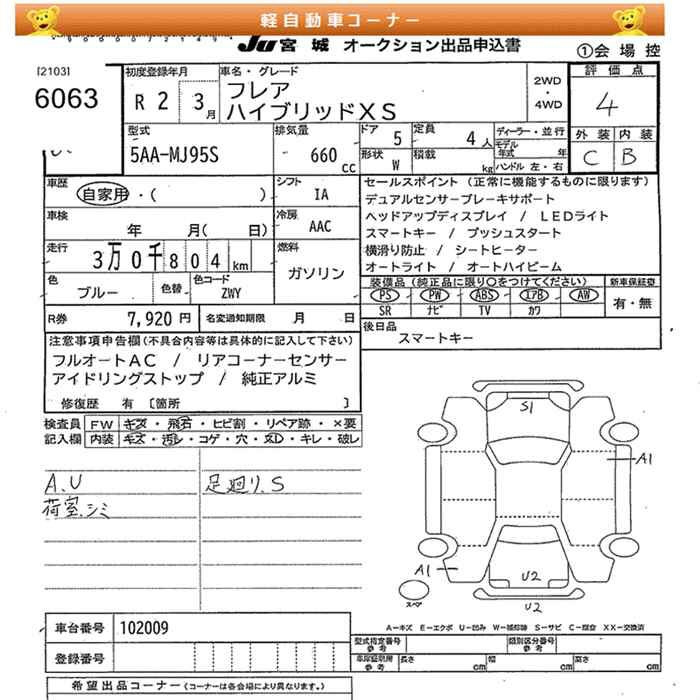 軽自動車コーナー
JU 宮城 オークション出品申込書
①会場控
[2103]
6063
初度登録年月
R 2 3月
車名・グレード
フレア
ハイブリッドXS
2WD
・
4WD
評価点
4
外装 内装
C B
型式
5AA-MJ95S
排気量
660 cc
ドア 5
定員 4人
ディーラー・並行
モデル年式 年
形状 W
積載 kg
ハンドル 左・右
車歴
自家用・( )
シフト
IA
車検
年 月( 日)
冷房
AAC
走行
3万0千804km
燃料
ガソリン
色
ブルー
色替
色コード
ZWY
R券 7,920円
名変通知期限 月 日
セールスポイント(正常に機能するものに限ります)
デュアルセンサーブレーキサポート
ヘッドアップディスプレイ / LEDライト
スマートキー / プッシュスタート
横滑り防止 / シートヒーター
オートライト / オートハイビーム
装備品(純正品に限り○をつけてください)
新車保証書
PS PW ABS エアB AW
SR ナビ TV カワ
有・無
後日品
スマートキー
注意事項申告欄(不具合内容等は具体的に記入して下さい)
フルオートAC / リアコーナーセンサー
アイドリングストップ / 純正アルミ
修復歴 有 〔箇所 〕
検査員記入欄
FW キズ・飛石・ヒビ割・リペア跡・×要
内装 キズ・汚レ・コゲ・穴・スレ・キレ・破レ
A.U
荷室.シミ
足廻り.S
S1
A1
A1
U2
U2
スペア
A−キズ E−エクボ U−凹み W−補修跡 S−サビ C−腐食 XX−交換済
車台番号 102009
登録番号
型式指定番号 参考
類別区分番号 参考
車庫証明用 参考
長さ cm 幅 cm 高さ cm
希望出品コーナー(コーナーは各会場により異なります。)